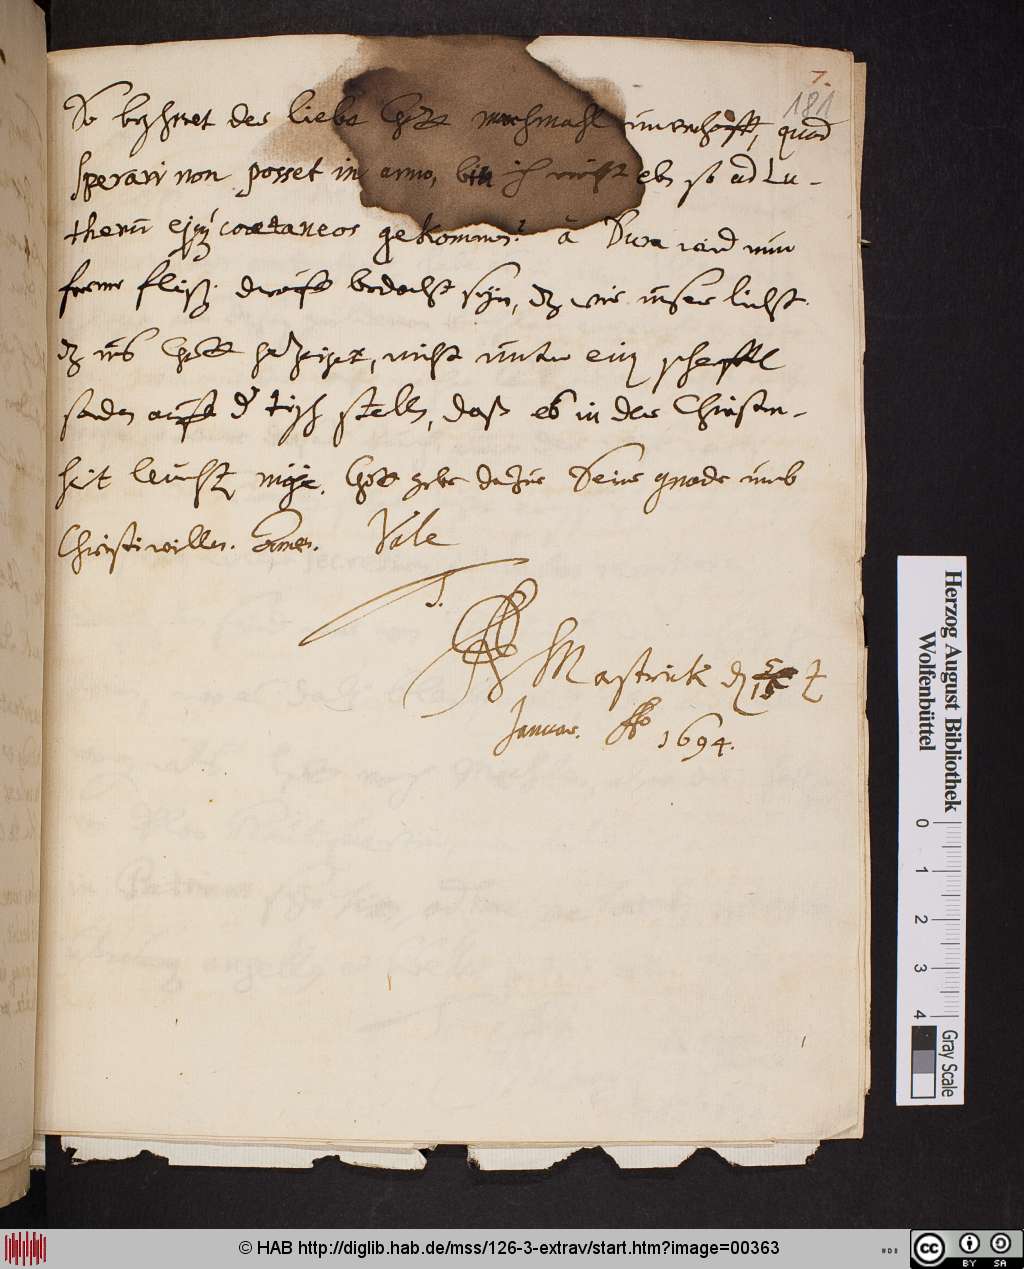 7.
181
So bescheret der liebe Gott manchmahl unverhofft, quod
sperari non posset in anno, bin ich nicht eben so ad Lu-
therū ejusq́ coætaneos gekommen? à Dura wird nun
ferner fleiß. drauff bedacht seyn, dz wir unser liecht
dz uns Gott gezeiget, nicht unter ein scheffel
sonden auff d tisch stellen, daß es in der Christen-
heit leuchten möge. Gott gebe dazue Seine gnade umb
Christi willen. Amen. Vale
T.
Mastrick d 5/15 t
Januar. Ao 1694.
Herzog August Bibliothek
Wolfenbüttel
0 1 2 3 4
Gray Scale
© HAB http://diglib.hab.de/mss/126-3-extrav/start.htm?image=00363
cc BY SA